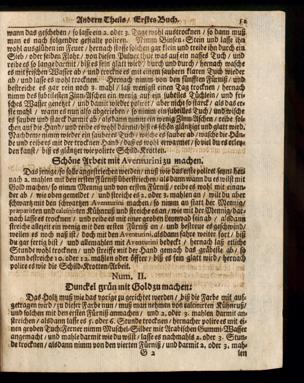 Andern Theils / Erstes Buch. 51
wann das geschehen / so lasse in 2. oder 3. Tage wohl austrocknen / so dann muß
man es nach folgender gestalte poliren. Nimm Binsen-Stein und lasse ihn
wohl ausglühen im Feuer / hernach stosse solchen gar klein und reibe ihn durch ein
Sieb / oder seiden Flohr / von diesem Pulver thue was auf ein nasses Tuch / und
reibe es so lange damit / biß es fein glatt wird / durch und durch / hernach wasche
es mit frischen Wasser ab / und trockne es mit einem saubern klaren Tuch wieder
ab / und lasse es wohl trocknen / so dann nimm von den fünfften Fürniß / und
bestreiche es gar rein noch 2. mahl / laß weniger einen Tag trocknen / hernach
nimm
des Tuch / und
sches Wasser genetzet / und damit wieder poliret / aber nicht so starck / als das er-
ste mahl / wann es nun also abgerieben / so nimm ein subtiles Tuch / und wische
es sauber und starck damit ab / alsdann nimm ein wenig Zinn-Aschen / reibe sol-
che auf die Hand / und reibe es wohl damit / biß es schön gläntzet und glatt wird.
Nachdeme nimm wieder ein sauberes Tuch / wische es sauber ab / wasche die Hän-
de und reibe es mit der trocknen Hand / daß es wohl erwarmet / so viel du es erley-
den kanst / biß es gläntzet wie polirte Schild-Krotten.
Schöne Arbeit mit Aventurini zu machen.
Das jenige / so
nach 2. mahlen mit den ersten Fürniß überstrichen / und es trocken / wann du es wilt mit
Gold machen / so nimm Mennig und von ersten Fürniß / reibe es wohl mit einan-
der ab / wie oben gemeldet / und streiche es 2. oder 3. mahlen an / wilt du aber
schwartz mit den schwartzen Aventurini machen / so nimm an statt der Mennig
præparirten und calcinirten Kühnruß und streiche es an / wie mit der Mennig / dar-
nach lasse es trocknen / und reibe es mit einer groben Leinwad fein ab / alsdann
streiche allzeit ein wenig mit den ersten Fürniß an / und bestreue es geschwind /
weilen es noch naß ist / doch nur dreymahl / alsdann fahre weiter fort / biß
du gar fertig bist / und allenmahlen mit Aventurini bedeckt / hernach laß etliche
Stunde wohl trocknen / und streiffe mit der Hand gemach das gräbste ab / als-
dann bestreiche 10. oder 12. mahlen oder öffter / biß es fein glatt wird / hernach
polire es wie die Schild-Krotten-Arbeit.
Num. II.
Dunckel grün mit Gold zu machen:
Das Holtz muß wie das vorige zu gerichtet werden / biß die Farbe mit auf-
getragen wird / zu dieser Farbe nun / muß man nehmen von calcinirten Kühnruß /
und solchen mit den ersten Fürniß anmachen / und 2. oder 3. mahlen damit an-
streichen / alsdann lasse es 5. oder 6. Stunde trocknen / hernacher polire es mit ei-
nen groben Tuch. Ferner nimm Muschel-Silber mit Arabischen Gummi-Wasser
angemacht / und mahle darmit wie du wilt / lasse es nachmahls 2. oder 3. Stun-
de trocknen / alsdann nimm von den vierten Fürniß / und darmit 2. oder 3. mah-
G 2 len